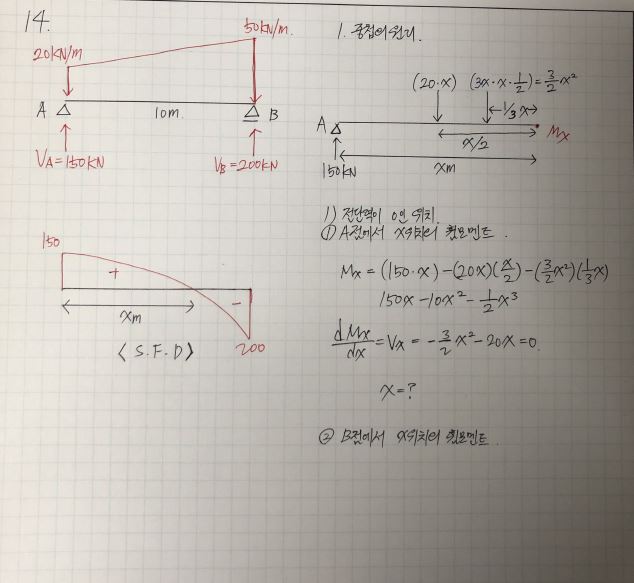 14.
20kN/m
50kN/m.
A
10m.
B
VA=150KN
VB=200KN
150
+
−
xm
200
< S.F.D >
1. 중첩의원리.
(20·x) (3x·x·1/2)=3/2x²
1/3x
A
Mx
x/2
150KN
xm
1) 전단력이 0인 위치.
① A점에서 x위치의 휨모멘트.
Mx = (150·x)-(20x)(x/2)-(3/2x²)(1/3x)
150x-10x²-1/2x³
dMx/dx=Vx=-3/2x²-20x=0.
x=?
② B점에서 x위치의 휨모멘트.